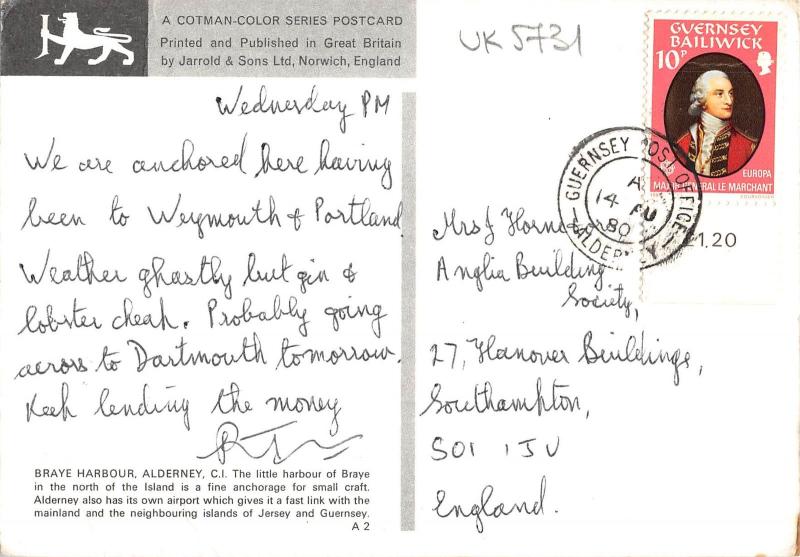 A COTMAN-COLOR SERIES POSTCARD
Printed and Published in Great Britain
by Jarrold & Sons Ltd, Norwich, England
UK 5731
GUERNSEY
BAILIWICK
10P
EUROPA
MAJOR GENERAL LE MARCHANT
1980 COURVOISIER
GUERNSEY POST OFFICE
A
14 AU
80
ALDERNEY
£1.20
Wednesday PM
We are anchored here having
been to Weymouth & Portland
Weather ghastly but gin &
lobster cheap. Probably going
across to Dartmouth tomorrow.
Keep lending the money
Mrs J
Anglia Building
Society,
27, Hanover Buildings,
Southampton,
SO1 1JU
England.
BRAYE HARBOUR, ALDERNEY, C.I. The little harbour of Braye
in the north of the Island is a fine anchorage for small craft.
Alderney also has its own airport which gives it a fast link with the
mainland and the neighbouring islands of Jersey and Guernsey.
A 2